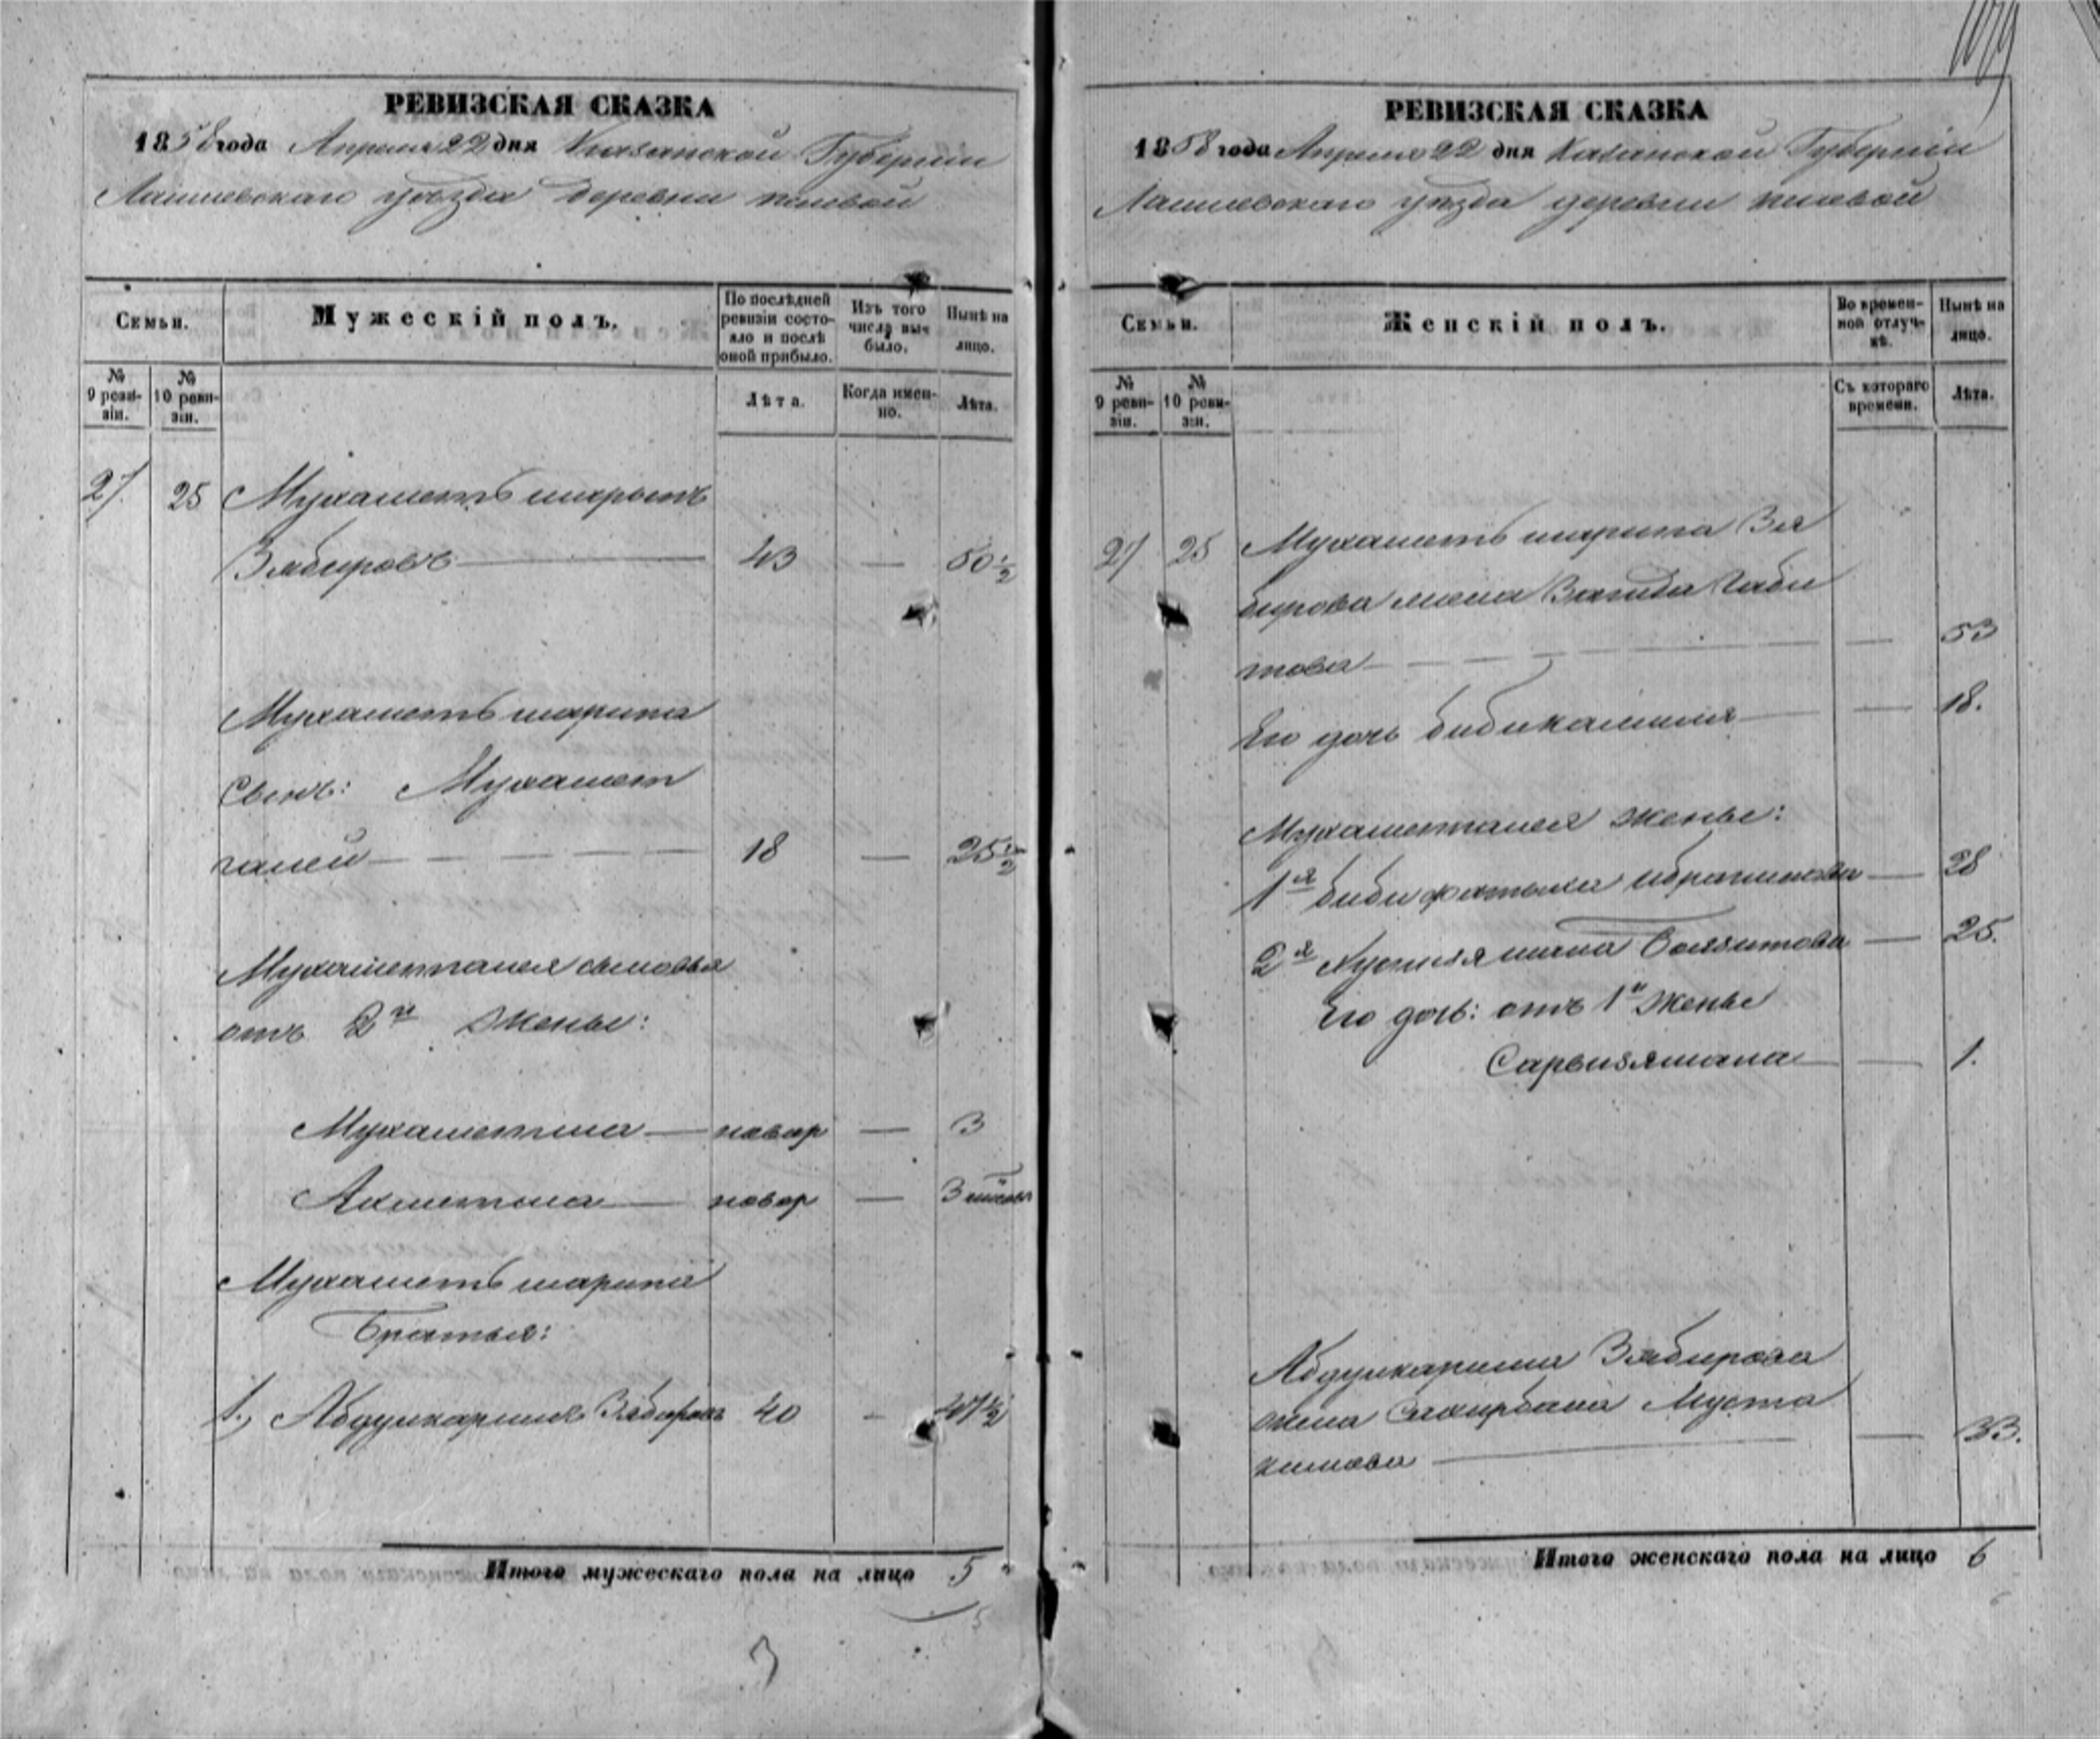 РЕВИЗСКАЯ СКАЗКА
1858 года Апреля 22 дня Казанской Губернии
Лаишевскаго уезда деревни
Семьи.
Мужескій полъ.
По послѣдней ревизіи состояло и послѣ оной прибыло.
Изъ того числа выбыло.
Нынѣ на лицо.
№ 9 ревизіи.
№ 10 ревизіи.
Лѣта.
Когда именно.
Лѣта.
27. 25 Мухаметъ шарыпъ
Зябировъ — 43 — 50 1/2
Мухаметъ шарипа
Сынъ: Мухамет
галей — 18 — 25 1/2
Мухаметгалея сыновья
отъ 2й жены:
Мухаметша — новор — 3
Ахметша — новор — 3
Мухаметъ шарипа
Братья:
1., Абдулкаримъ Зябировъ 40 — 47 1/2
Итого мужескаго пола на лицо 5
5
3
РЕВИЗСКАЯ СКАЗКА
1858 года Апреля 22 дня Казанской Губерніи
Лаишевскаго уѣзда деревни
Семьи.
Женскій полъ.
Во временной отлучкѣ.
Нынѣ на лицо.
№ 9 ревизіи.
№ 10 ревизіи.
Съ котораго времени.
Лѣта.
27 25 Мухаметъ шарипа Зя
бирова жена Вагида Габи
това — — 53
Его дочь бибикамиля — — 18.
Мухаметгалея жены:
1я биби фатыха Ибрагимова — 28
2я Баязитова — 25.
Его дочь: отъ 1й жены
— — 1.
Абдулкарима Зябирова
жена Сахирбана Муста
кимова — — 33.
Итого женскаго пола на лицо 6
6